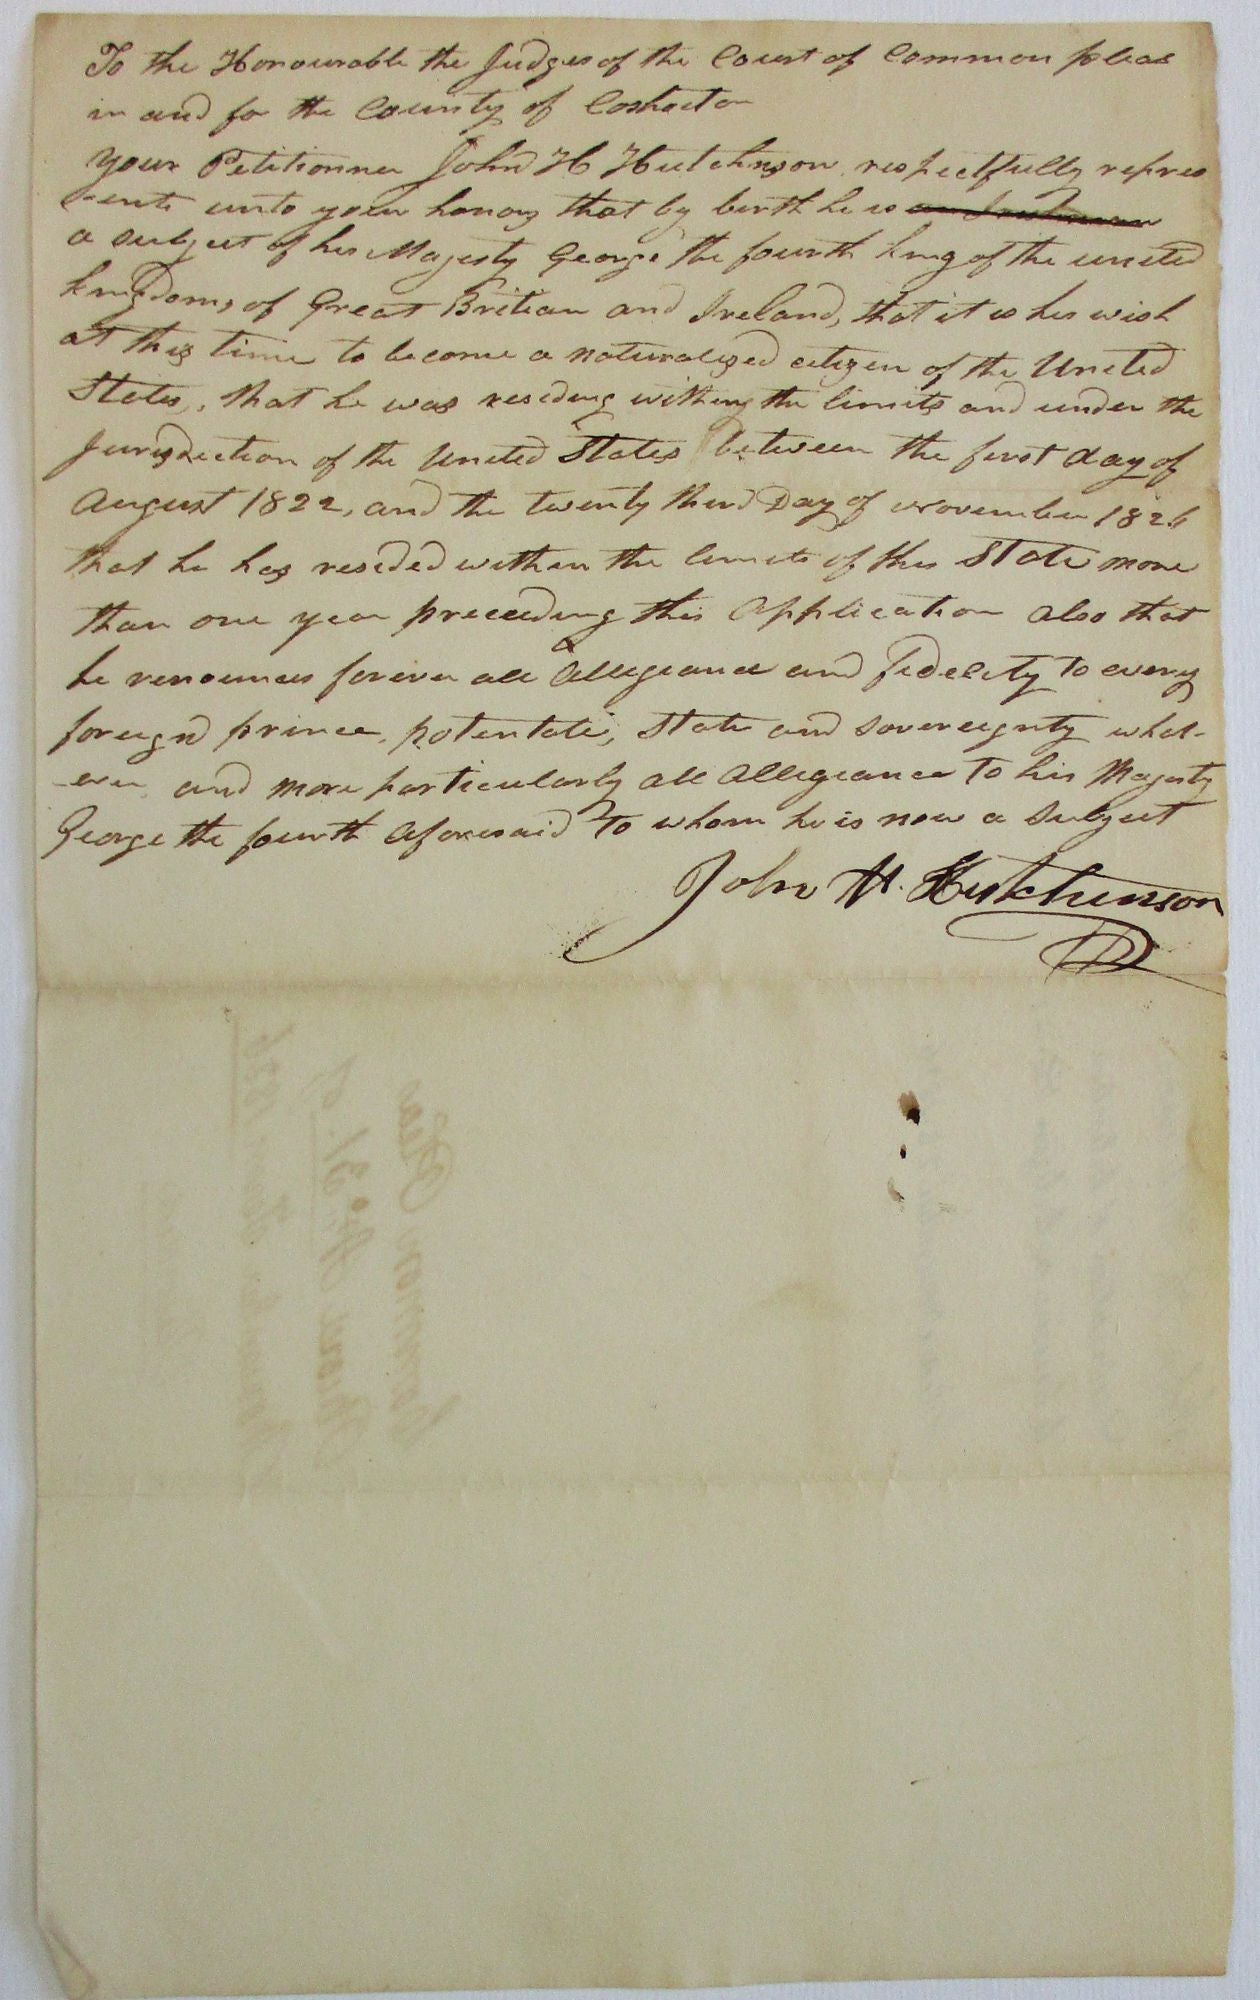 To the Honourable the Judges of the Court of Common pleas
in and for the County of Coshocton
Your Petitionner John H Hutchinson respectfully repres
-ents unto your honors that by birth he is an Irishman
a subject of his Majesty George the fourth king of the united
kingdoms of Great Britian and Ireland, that it is his wish
at this time to become a naturalized citizen of the United
States, that he was residing within the limits and under the
Jurisdiction of the United States between the first day of
August 1822, and the twenty third Day of November 1826
that he has resided within the limits of this State more
than one year preceeding this Application also that
he renounces forever all Allegiance and fidelity to every
foreign prince, potentate, State and Sovereignty what-
-ever and more particularly all Allegiance to his Majesty
George the fourth Aforesaid To whom he is now a Subject
John H. Hutchinson